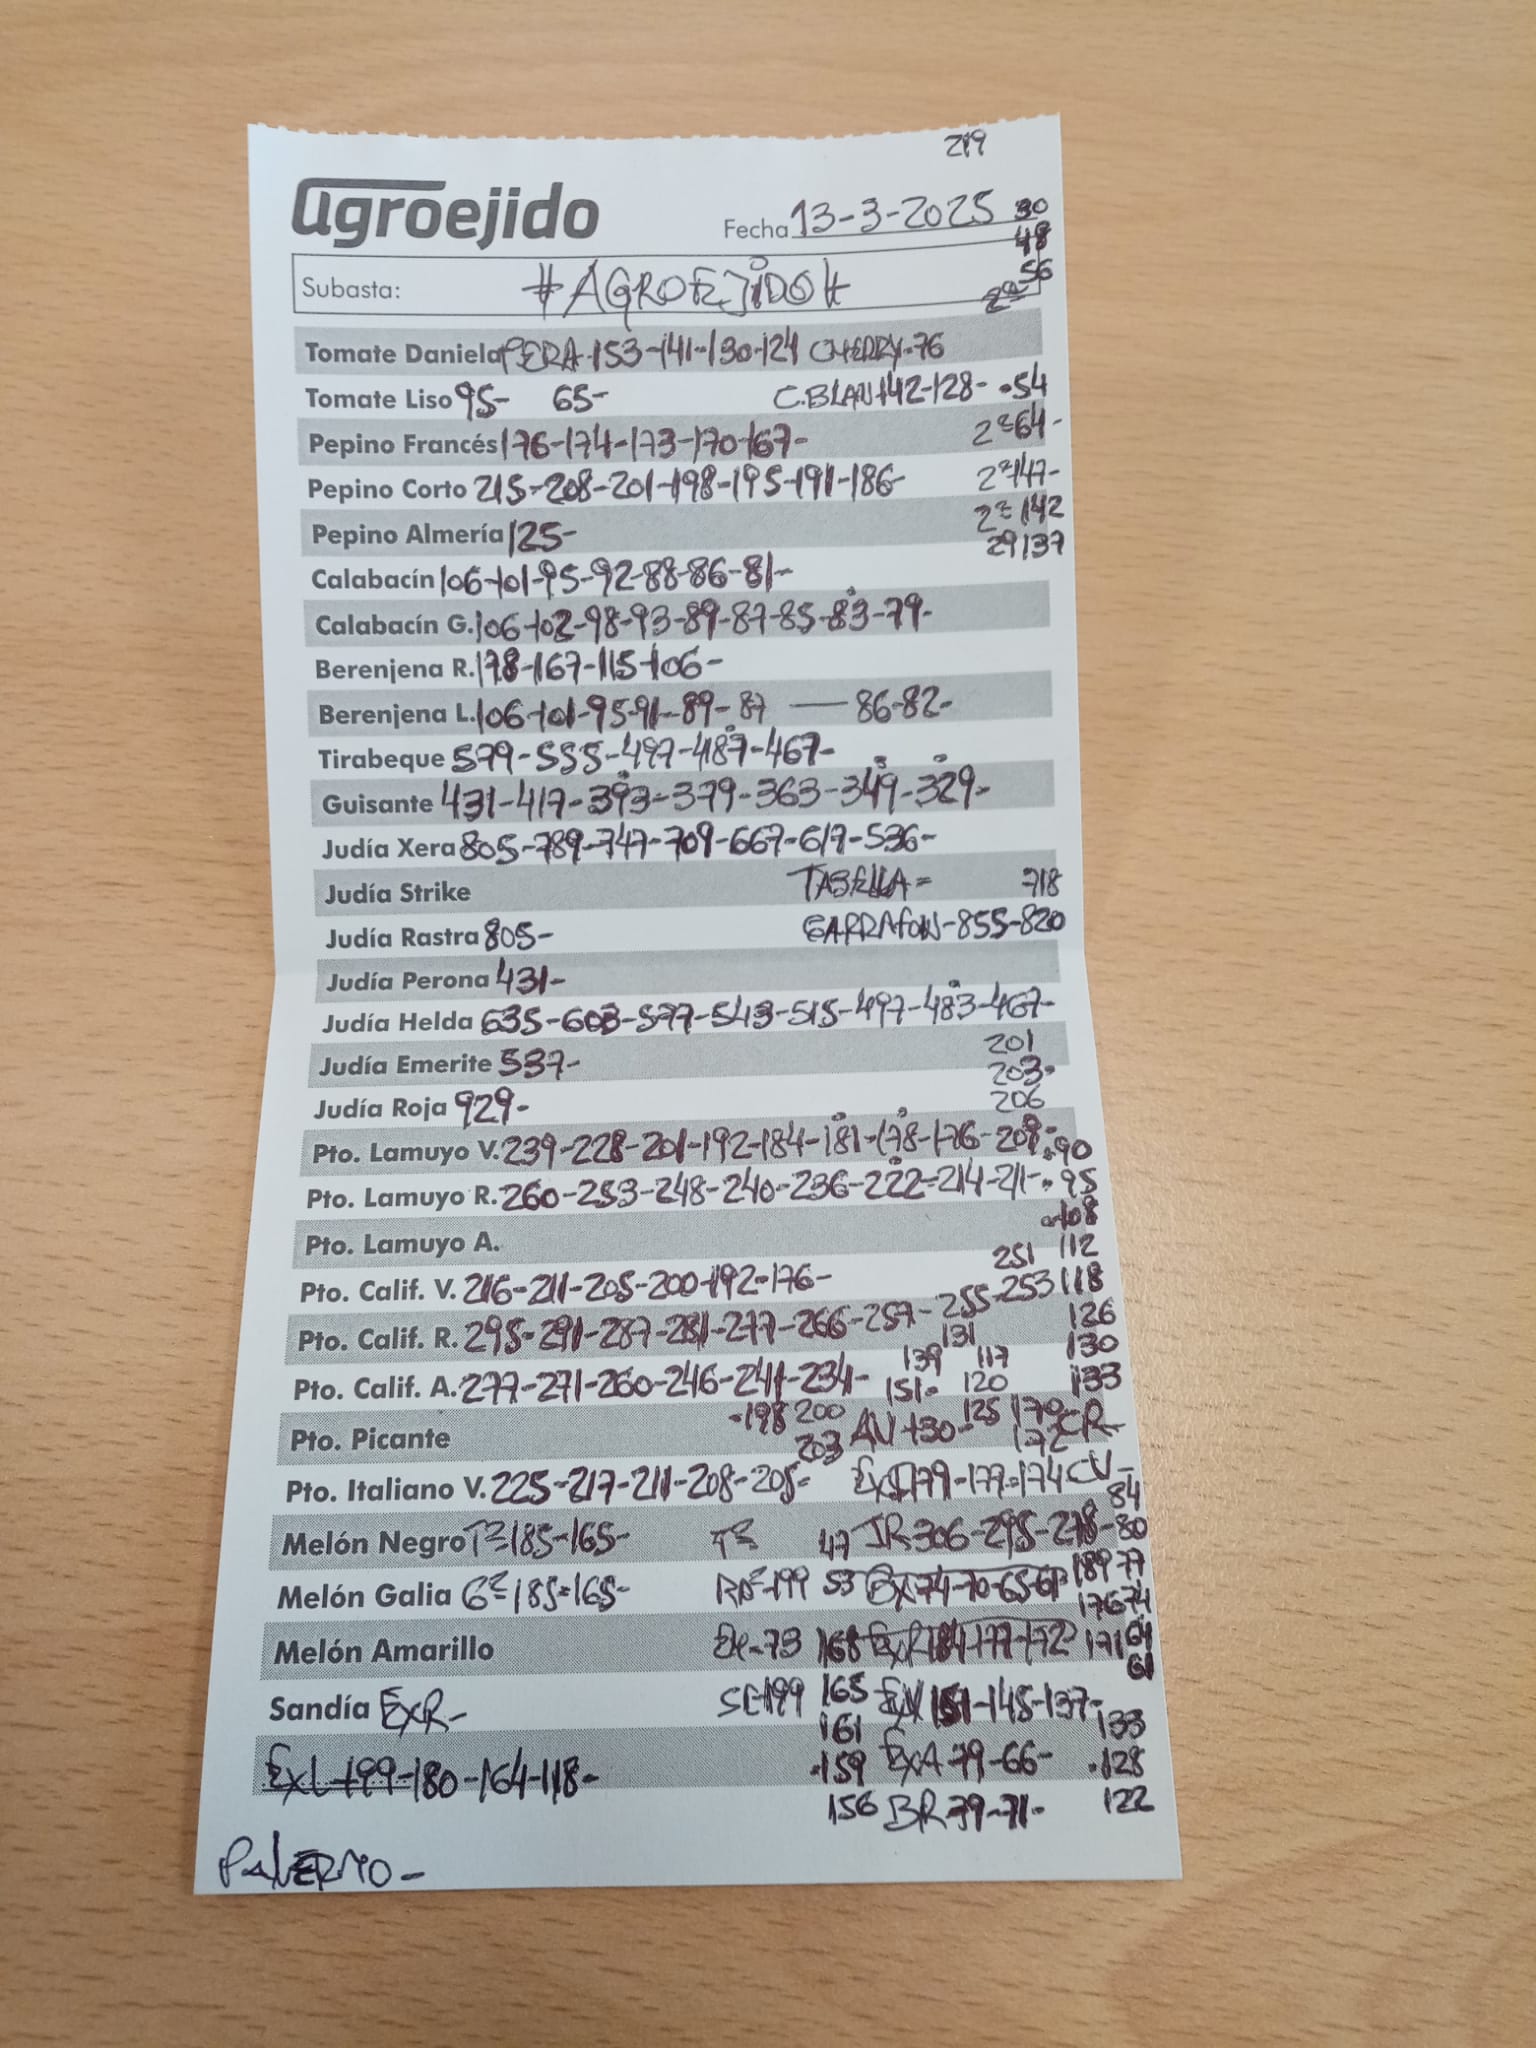 219
agroejido
Fecha 13-3-2025 30
48
56
Subasta: #AGROEJIDO# 2ª
Tomate Daniela PERA-153-141-130-124 CHERRY-76
Tomate Liso 95- 65- C.BLAN 142-128- .54
Pepino Francés 176-174-173-170-167- 2ª64-
Pepino Corto 215-208-201-198-195-191-186- 2ª147-
Pepino Almería 125- 2ª142
2ª137
Calabacín 106-101-95-92-88-86-81-
Calabacín G. 106-102-98-93-89-87-85-83-79-
Berenjena R. 178-167-115-106-
Berenjena L. 106-101-95-91-89-87 — 86-82-
Tirabeque 579-555-497-487-467-
Guisante 431-417-393-379-363-349-329-
Judía Xera 805-789-747-709-667-617-536-
Judía Strike TABELLA= 718
Judía Rastra 805- GARRAFON-855-820
Judía Perona 431-
Judía Helda 635-603-577-543-515-497-483-467-
Judía Emerite 537- 201
203.
Judía Roja 929- 206
Pto. Lamuyo V. 239-228-201-192-184-181-178-176-209- .90
Pto. Lamuyo R. 260-253-248-240-236-222-214-211- .95
.108
Pto. Lamuyo A.
251 112
Pto. Calif. V. 216-211-205-200-192-176-
Pto. Calif. R. 295-291-287-281-277-266-257-255-253 118
126
131 130
139 117
Pto. Calif. A. 277-271-260-246-241-234- 151. 120 133
.198 200
Pto. Picante 203 AV 130- 125 170- CR-
172
Pto. Italiano V. 225-217-211-208-205- 179-177-174 CV-
84
Melón Negro Tª185-165- Tª 47 JR 306-295-278-80
Melón Galia Gª185-165- -199 53 74-70-65-61 189 77
176 74
Melón Amarillo -73 168 ExR 184-177-172 171 64
61
Sandía ExR- -199 165 151-148-137-
161 133
ExL-199-180-164-118- .159 ExA 79-66- .128
156 BR 79-71- 122
PALERMO-